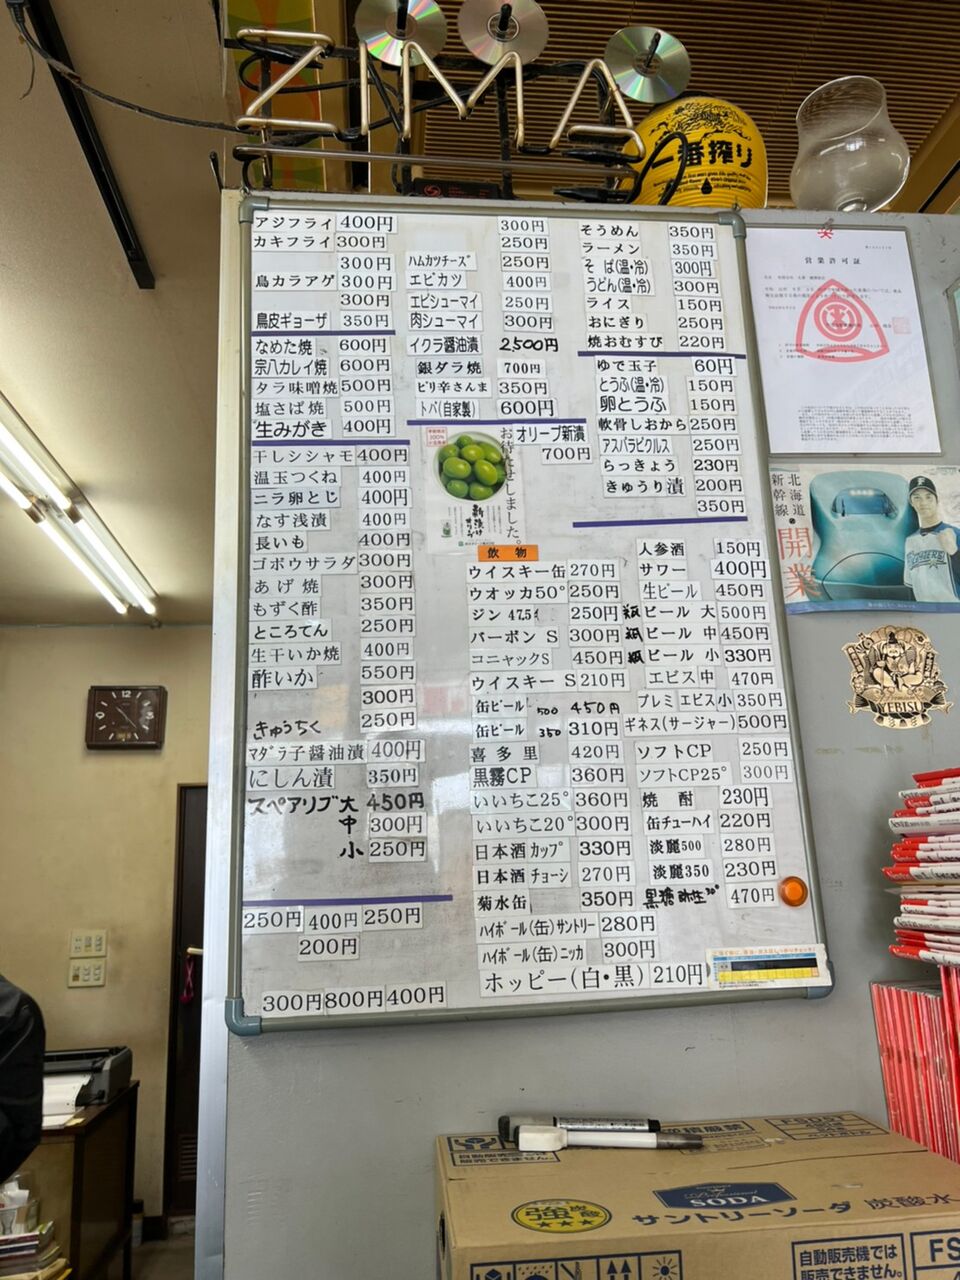 一番搾り
アジフライ 400円
カキフライ 300円
300円
鳥カラアゲ 300円
300円
鳥皮ギョーザ 350円
なめた焼 600円
宗八カレイ焼 600円
タラ味噌焼 500円
塩さば焼 500円
生みがき 400円
干しシシャモ 400円
温玉つくね 400円
ニラ卵とじ 400円
なす浅漬 400円
長いも 400円
ゴボウサラダ 300円
あげ焼 300円
もずく酢 350円
ところてん 250円
生干いか焼 400円
酢いか 550円
300円
きゅうちく 250円
マダラ子醤油漬 400円
にしん漬 350円
スペアリブ大 450円
中 300円
小 250円
250円 400円 250円
200円
300円 800円 400円
300円
250円
ハムカツチーズ 250円
エビカツ 400円
エビシューマイ 250円
肉シューマイ 300円
イクラ醤油漬 2,500円
銀ダラ焼 700円
ピリ辛さんま 350円
トバ(自家製) 600円
オリーブ新漬
700円
お待たせしました。
新漬けオリーブ
そうめん 350円
ラーメン 350円
そば(温・冷) 300円
うどん(温・冷) 300円
ライス 150円
おにぎり 250円
焼おむすび 220円
ゆで玉子 60円
とうふ(温・冷) 150円
卵とうふ 150円
軟骨しおから 250円
アスパラピクルス 250円
らっきょう 230円
きゅうり漬 200円
350円
飲物
ウイスキー缶 270円
ウオッカ50° 250円
ジン 47.5 250円
バーボン S 300円
コニャックS 450円
ウイスキー S 210円
缶ビール 500 450円
缶ビール 350 310円
喜多里 420円
黒霧CP 360円
いいちこ25° 360円
いいちこ20° 300円
日本酒カップ 330円
日本酒 チョーシ 270円
菊水缶 350円
ハイボール(缶)サントリー 280円
ハイボール(缶)ニッカ 300円
ホッピー(白・黒) 210円
人参酒 150円
サワー 400円
生ビール 450円
瓶 ビール 大 500円
瓶 ビール 中 450円
瓶 ビール 小 330円
エビス中 470円
プレミエビス小 350円
ギネス(サージャー) 500円
ソフトCP 250円
ソフトCP25° 300円
焼酎 230円
缶チューハイ 220円
淡麗500 280円
淡麗350 230円
470円
営業許可証
北海道
新幹線
開業
YEBISU
自動販売機では
販売できません。
FS
強炭酸
Professional
SODA
サントリーソーダ 炭酸水
自動販売機では
販売できません。
FS